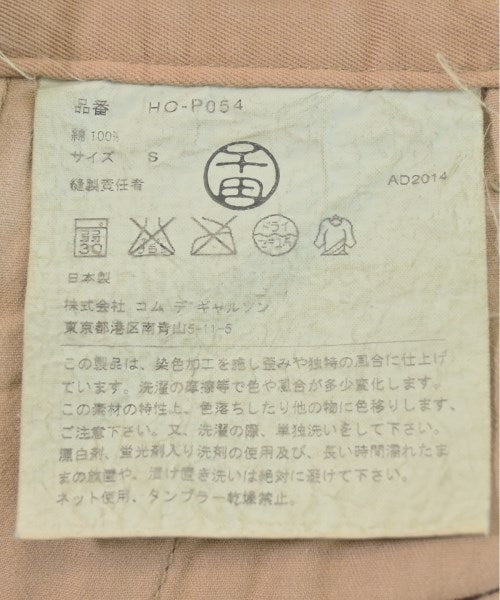 品番 HO-P054
綿 100%
サイズ S
縫製責任者
千田
AD2014
弱
30
ドライ
日本製
株式会社 コム デ ギャルソン
東京都港区南青山5-11-5
この製品は、染色加工を施し歪みや独特の風合に仕上げ
ています。洗濯の摩擦等で色や風合が多少変化します。
この素材の特性上、色落ちしたり他の物に色移りします、
ご注意下さい。又、洗濯の際、単独洗いをして下さい。
漂白剤、蛍光剤入り洗剤の使用及び、長い時間濡れたま
まの放置や、漬け置き洗いは絶対に避けて下さい。
ネット使用、タンブラー乾燥禁止。